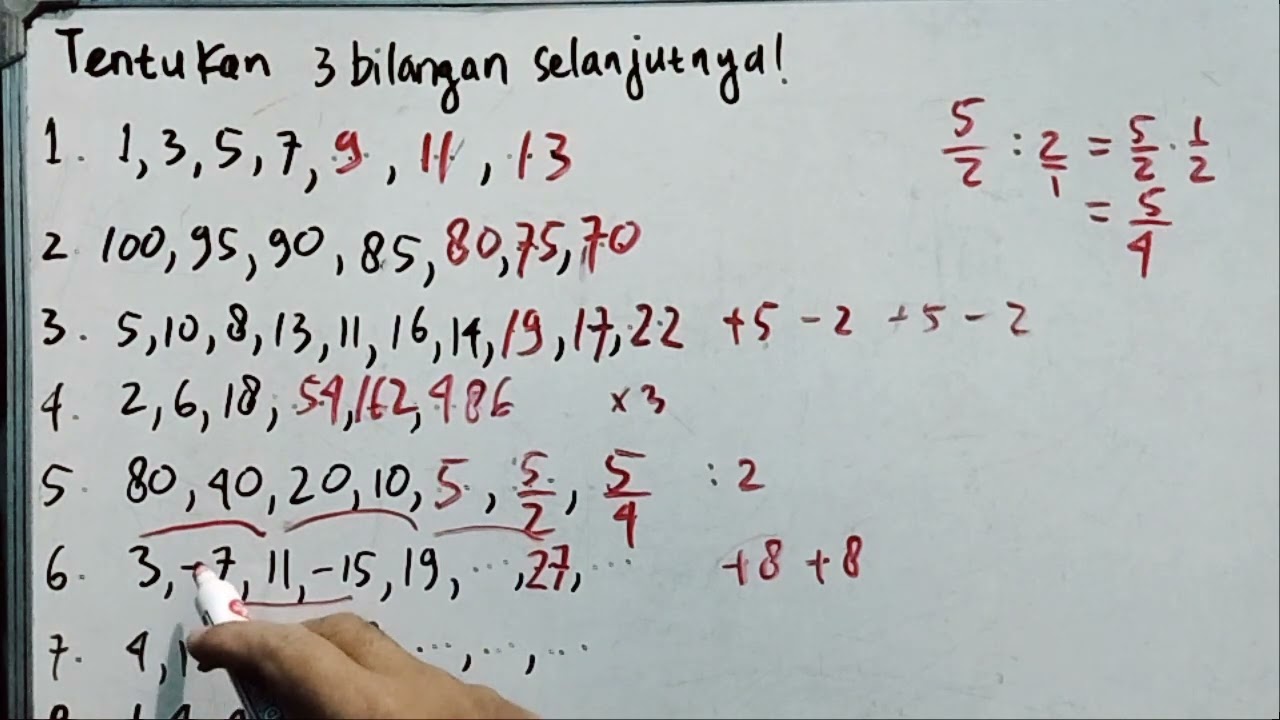 Tentukan 3 bilangan selanjutnya!
1. 1, 3, 5, 7, 9, 11, 13
5/2 : 2/1 = 5/2 . 1/2
= 5/4
2. 100, 95, 90, 85, 80, 75, 70
3. 5, 10, 8, 13, 11, 16, 14, 19, 17, 22 +5 -2 +5 -2
4. 2, 6, 18, 54, 162, 486 x3
5. 80, 40, 20, 10, 5, 5/2, 5/4 : 2
6. 3, -7, 11, -15, 19, ..., 27, ... +8 +8
7. 4, ..., ..., ...